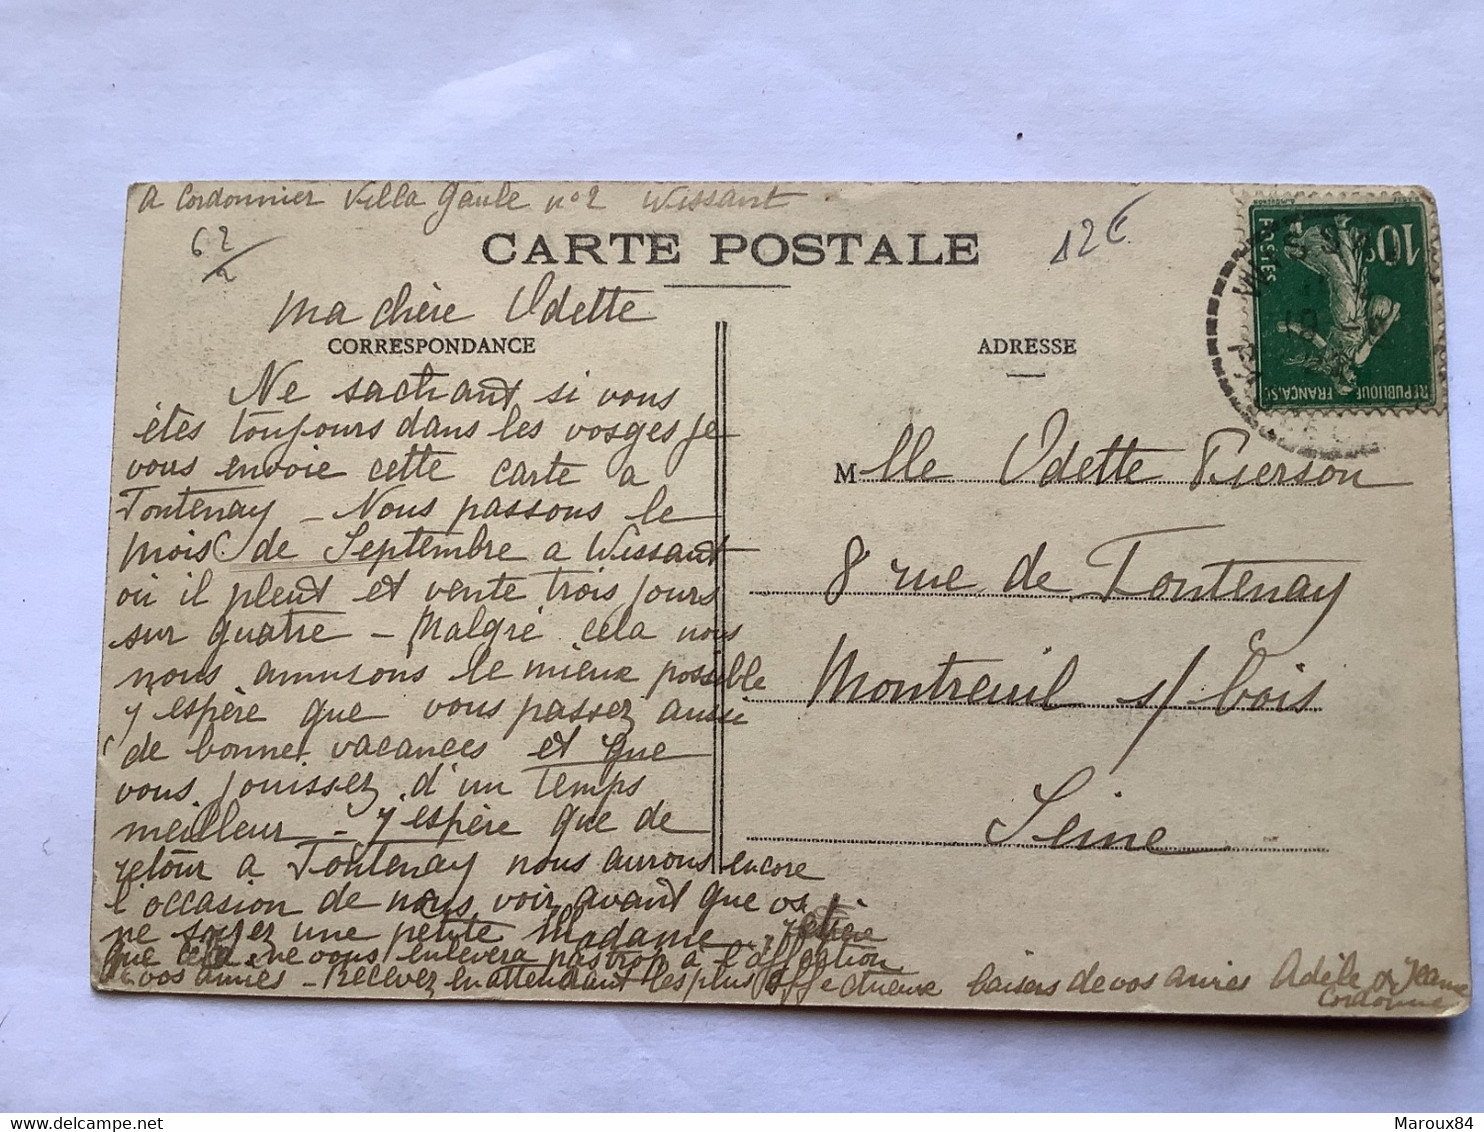 A Cordonnier Villa Gaule n° 2 Wissant
62/2
CARTE POSTALE
12€
Ma chère Odette
CORRESPONDANCE
Ne sachant si vous
êtes toujours dans les vosges je
vous envoie cette carte a
Fontenay – Nous passons le
mois de Septembre a Wissant
où il pleut et vente trois jours
sur quatre – Malgré cela nous
nous amusons le mieux possible
J'espère que vous passez aussi
de bonnes vacances et que
vous jouissez d'un temps
meilleur – J'espère que de
retour a Fontenay nous aurons encore
l'occasion de nous voir avant que vs
ne soyez une petite Madame. J'espère
que cela ne vous enlevera pas trop à l'affection
de vos amies – Recevez en attendant les plus affectueux baisers de vos amies Adèle & Jeanne
Cordonnier
ADRESSE
Mlle Odette Pierson
8 rue de Fontenay
Montreuil s/ bois
Seine
WISSANT
10c
POSTES
REPUBLIQUE FRANÇAISE
Maroux84